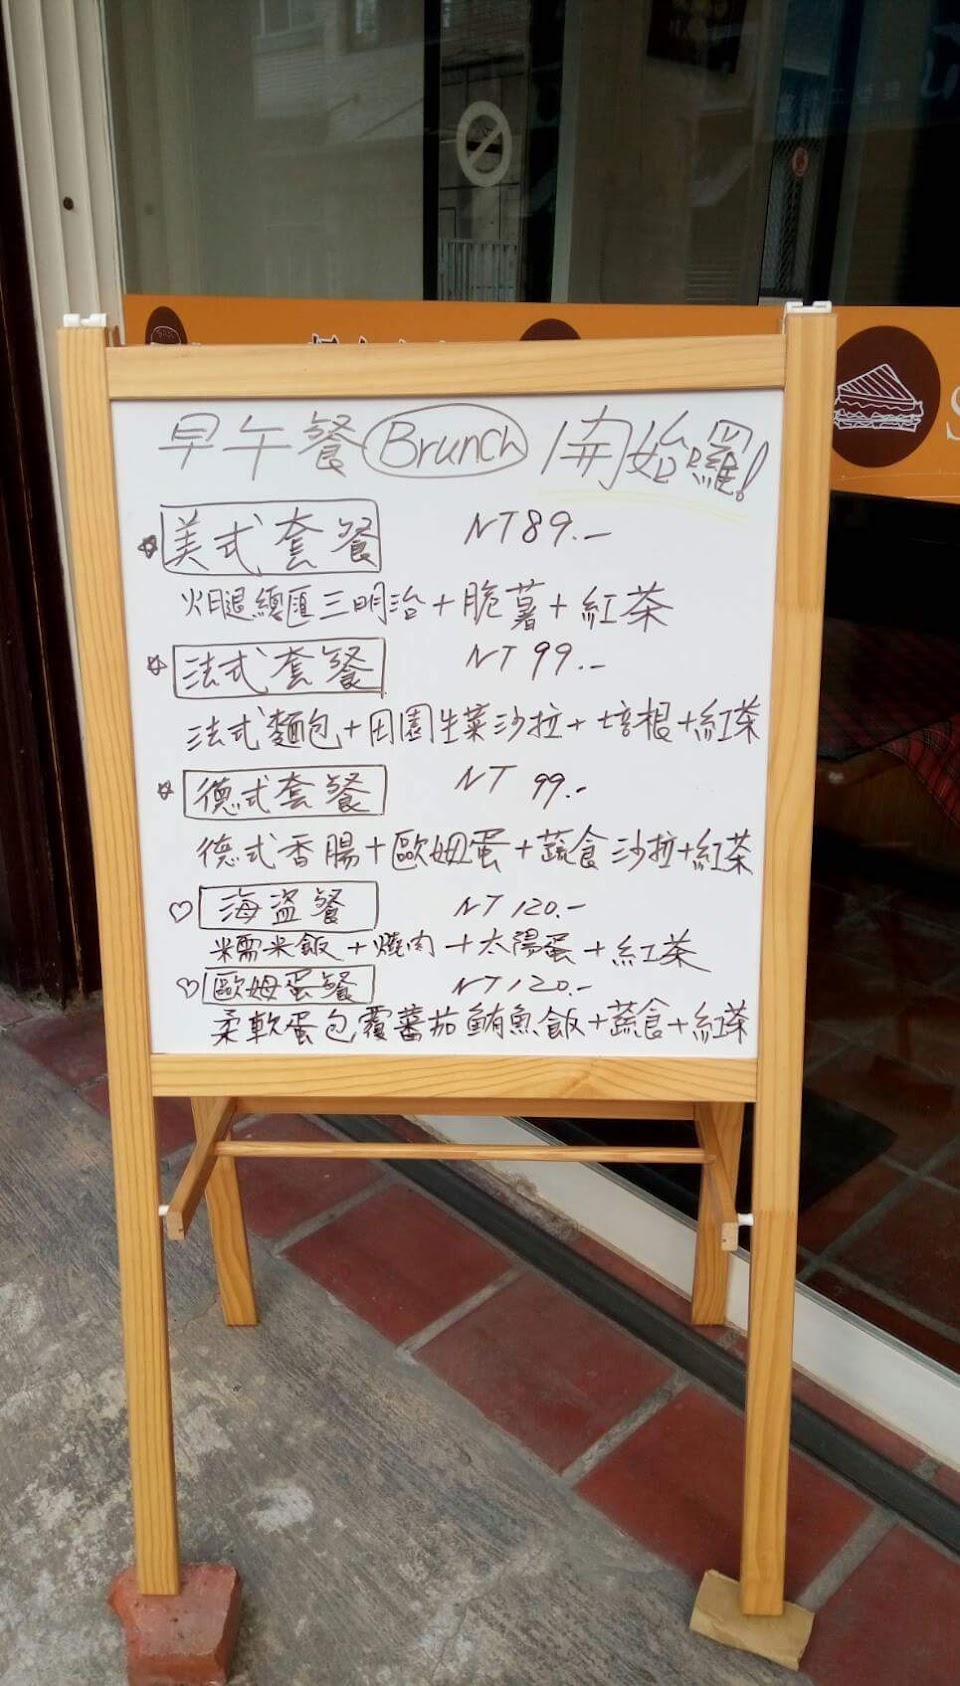 早午餐 Brunch 開始囉!
美式套餐 NT 89.-
火腿總匯三明治+脆薯+紅茶
法式套餐 NT 99.-
法式麵包+田園生菜沙拉+培根+紅茶
德式套餐 NT 99.-
德式香腸+歐姆蛋+蔬食沙拉+紅茶
♡ 海盜餐 NT 120.-
糯米飯+燒肉+太陽蛋+紅茶
♡ 歐姆蛋餐 NT 120.-
柔軟蛋包覆蕃茄鮪魚飯+蔬食+紅茶